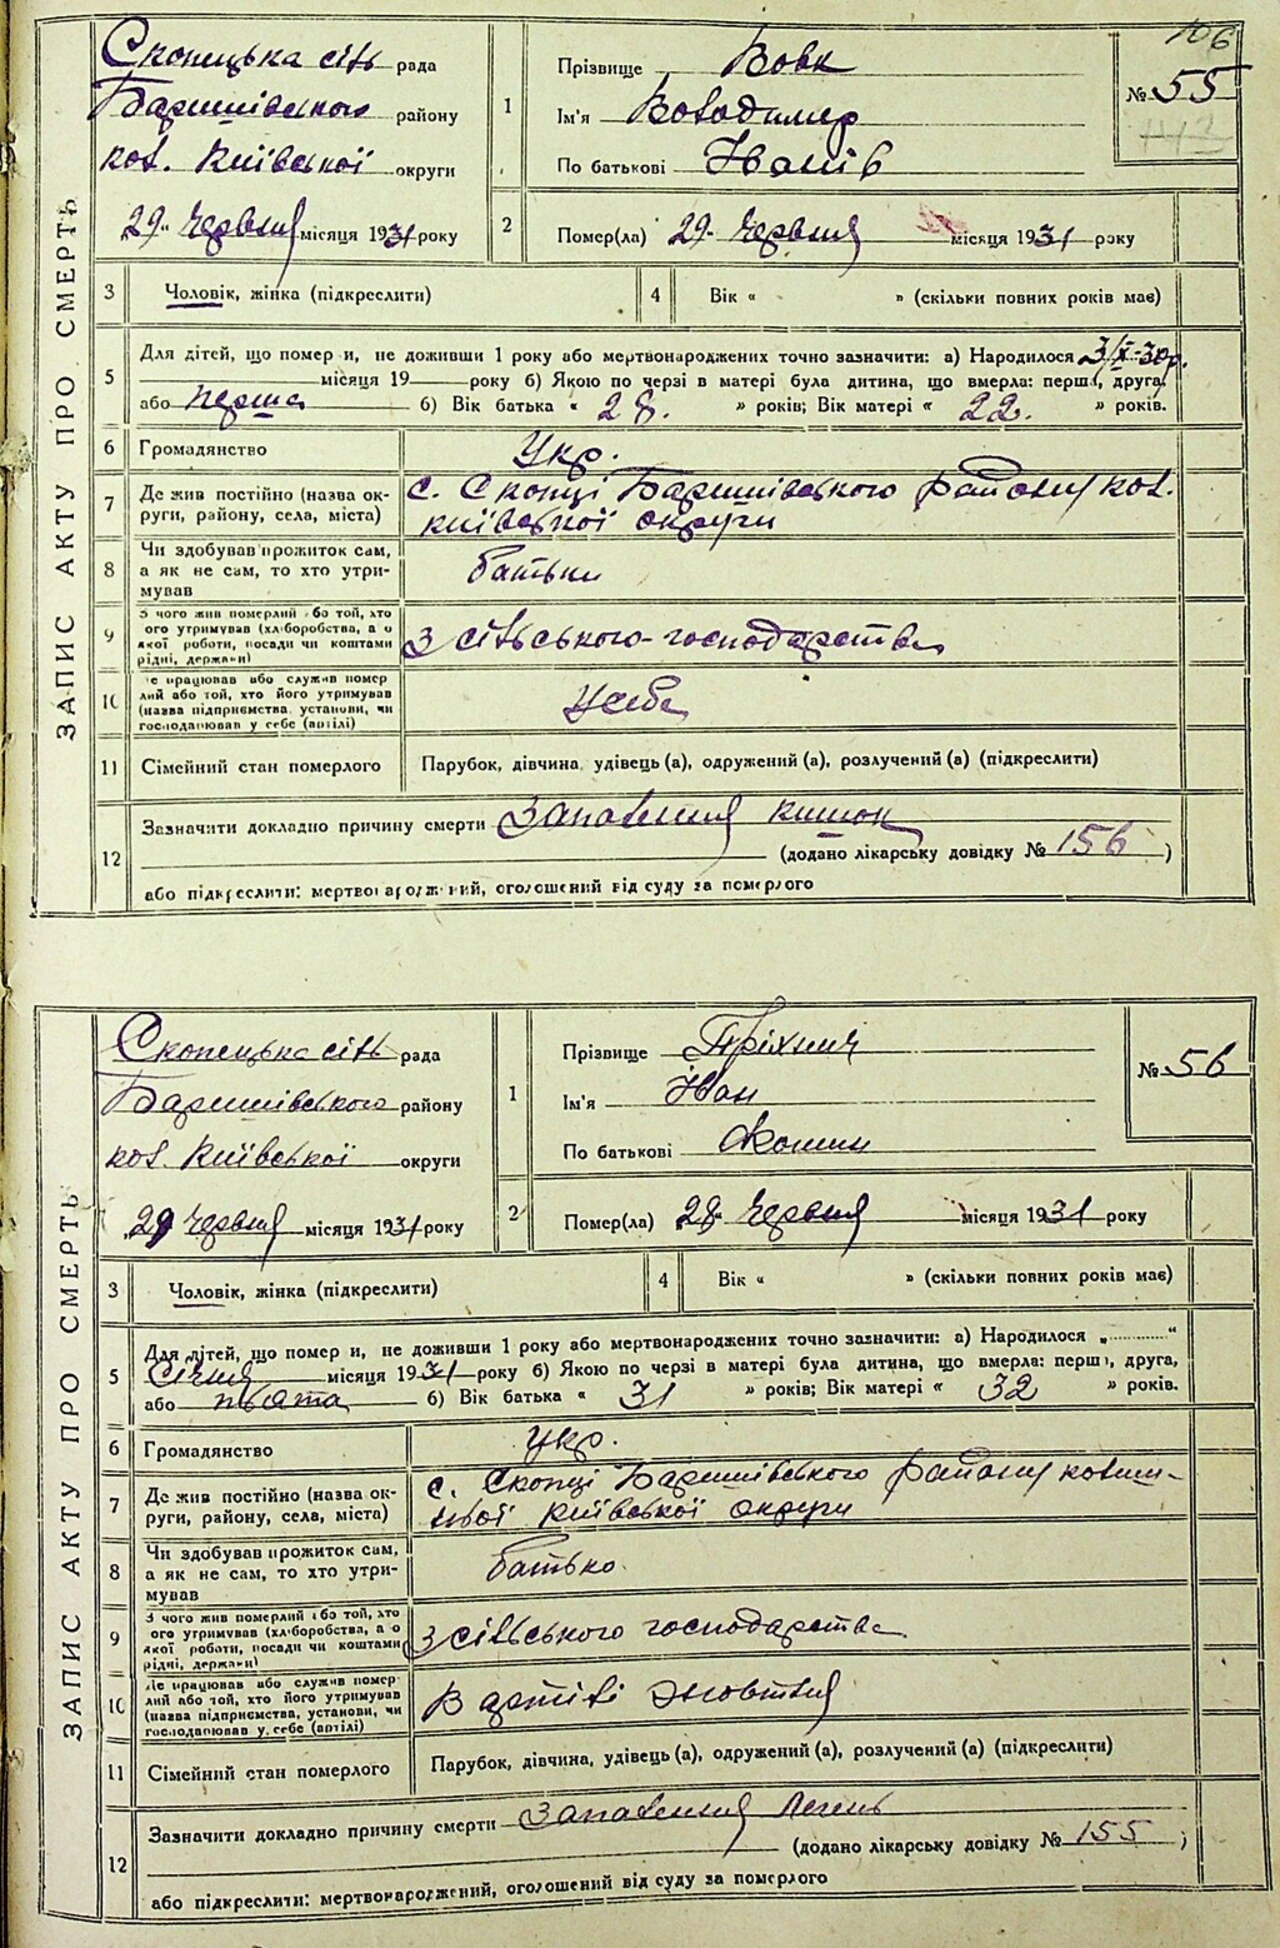 106
ЗАПИС АКТУ ПРО СМЕРТЬ
Скопецька сіль рада
Баришівського району
кол. Київської округи
„29" червня місяця 1931 року
1
Прізвище Вовк
Ім'я Володимер
По батькові Іванів
№ 55
143
2
Помер(ла) 29 червня місяця 1931 року
3 Чоловік, жінка (підкреслити)
4 Вік « » (скільки повних років має)
5
Для дітей, що помер и, не доживши 1 року або мертвонароджених точно зазначити: а) Народилося 3/X-30р.
місяця 19 року б) Якою по черзі в матері була дитина, що вмерла: перша, друга,
або перша б) Вік батька « 28. » років; Вік матері « 22. » років.
6 Громадянство Укр.
7
Де жив постійно (назва ок-
руги, району, села, міста)
с. Скопці Баришівського району кол.
київської округи
8
Чи здобував прожиток сам,
а як не сам, то хто утри-
мував
батьки
9
З чого жив померлий або той, хто
його утримував (хліборобства, а о
якої роботи, посади чи коштами
рідні, держави)
З сільського-господарства
10
Де працював або служив помер
лий або той, хто його утримував
(назва підприємства, установи, чи
господарював у себе (артілі)
У себе
11 Сімейний стан померлого
Парубок, дівчина, удівець (а), одружений (а), розлучений (а) (підкреслити)
12
Зазначити докладно причину смерти Запалення кишок
(додано лікарську довідку № 156 )
або підкреслити: мертвонароджений, оголошений від суду за померлого
ЗАПИС АКТУ ПРО СМЕРТЬ
Скопецька сіль рада
Баришівського району
кол. Київської округи
„29 червня місяця 1931 року
1
Прізвище
Ім'я Іван
По батькові
№ 56
2
Помер(ла) 28" червня місяця 1931 року
3 Чоловік, жінка (підкреслити)
4 Вік « » (скільки повних років має)
5
Для дітей, що помер и, не доживши 1 року або мертвонароджених точно зазначити: а) Народилося „ "
Січня місяця 1931 року б) Якою по черзі в матері була дитина, що вмерла: перша, друга,
або пьята б) Вік батька « 31 » років; Вік матері « 32 » років.
6 Громадянство укр.
7
Де жив постійно (назва ок-
руги, району, села, міста)
с. Скопці Баришівського району колиш-
ньої Київської округи
8
Чи здобував прожиток сам,
а як не сам, то хто утри-
мував
батько.
9
З чого жив померлий або той, хто
його утримував (хліборобства, а о
якої роботи, посади чи коштами
рідні, держави)
З сільського господарства
10
Де працював або служив помер-
лий або той, хто його утримував
(назва підприємства, установи, чи
господарював у себе (артілі)
В артілі Жовтня
11 Сімейний стан померлого
Парубок, дівчина, удівець (а), одружений (а), розлучений (а) (підкреслити)
12
Зазначити докладно причину смерти Запалення легень
(додано лікарську довідку № 155 )
або підкреслити: мертвонароджений, оголошений від суду за померлого